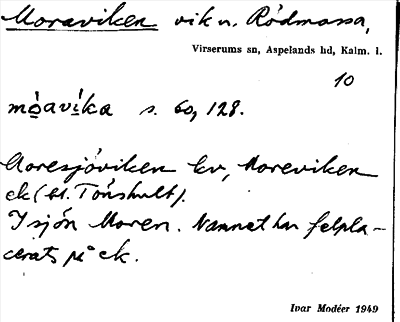 Moraviken vik n. Rödmossa,
Virserums sn, Aspelands hd, Kalm. l.
10
mò̱avíka s. 60, 128.
Moresjöviken kv, Moreviken
ek (bl. Tönshult).
I sjön Moren. Namnet har felpla-
cerats på ek.
Ivar Modéer 1949